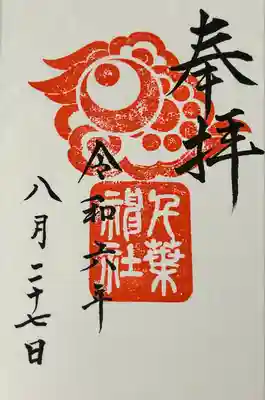 奉拝
千葉
禔社
令和六年
八月二十七日